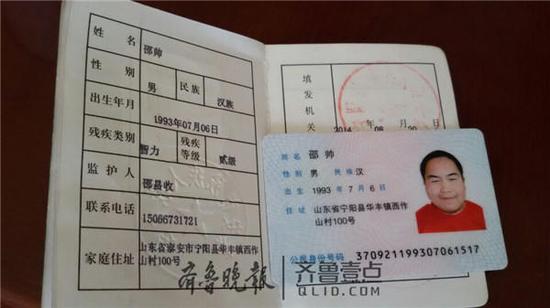 姓名
邵帅
性别
男
民族
汉族
出生年月
1993年07月06日
残疾类别
智力
残疾等级
贰级
监护人
邵昌收
联系电话
15066731721
家庭住址
山东省泰安市宁阳县华丰镇西作
山村100号
填发机关
年 月 日
姓名 邵帅
性别 男 民族 汉
出生 1993 年 7 月 6 日
住址 山东省宁阳县华丰镇西作
山村100号
公民身份号码 370921199307061517
齐鲁晚报
齐鲁壹点
QLID.COM